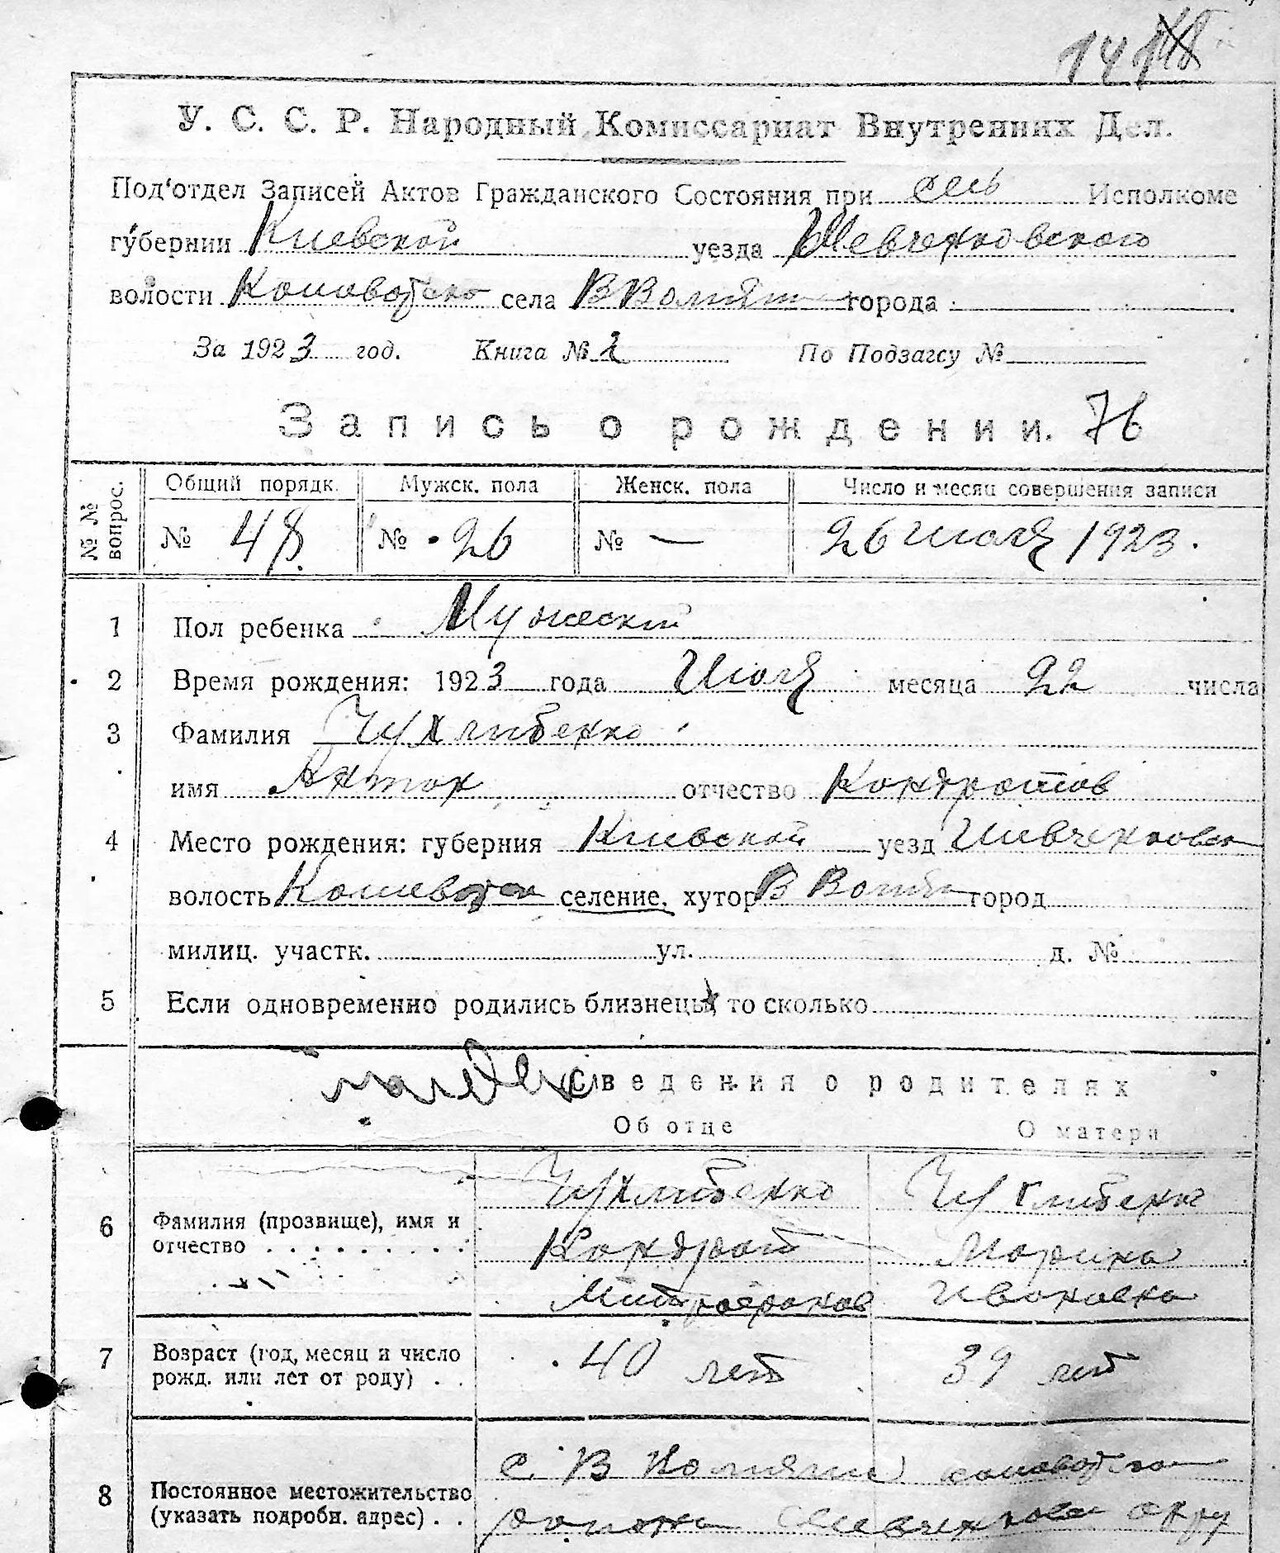 У. С. С. Р. Народный Комиссариат Внутренних Дел.
Под'отдел Записей Актов Гражданского Состояния при сель Исполкоме
губернии Киевской уезда Шевченковского
волости села города
За 1923 год. Книга № 2 По Подзагсу №
Запись о рождении. 76
№ № вопрос. Общий порядк. Мужск. пола Женск. пола Число и месяц совершения записи
№ 48 № 26 № — 26 Июля 1923.
1 Пол ребенка Мужеский
2 Время рождения: 1923 года Июля месяца 22 числа
3 Фамилия Чухлибенко
имя Антон отчество Кондратов
4 Место рождения: губерния Киевской уезд
волость селение, хутор город
милиц. участк. ул. д. №
5 Если одновременно родились близнецы, то сколько
Сведения о родителях
Об отце О матери
6 Фамилия (прозвище), имя и отчество
Чухлибенко Кондрат Митрофанов
Марина Ивановна
7 Возраст (год, месяц и число рожд. или лет от роду)
40 лет 39 лет
8 Постоянное местожительство (указать подробн. адрес)
с. В